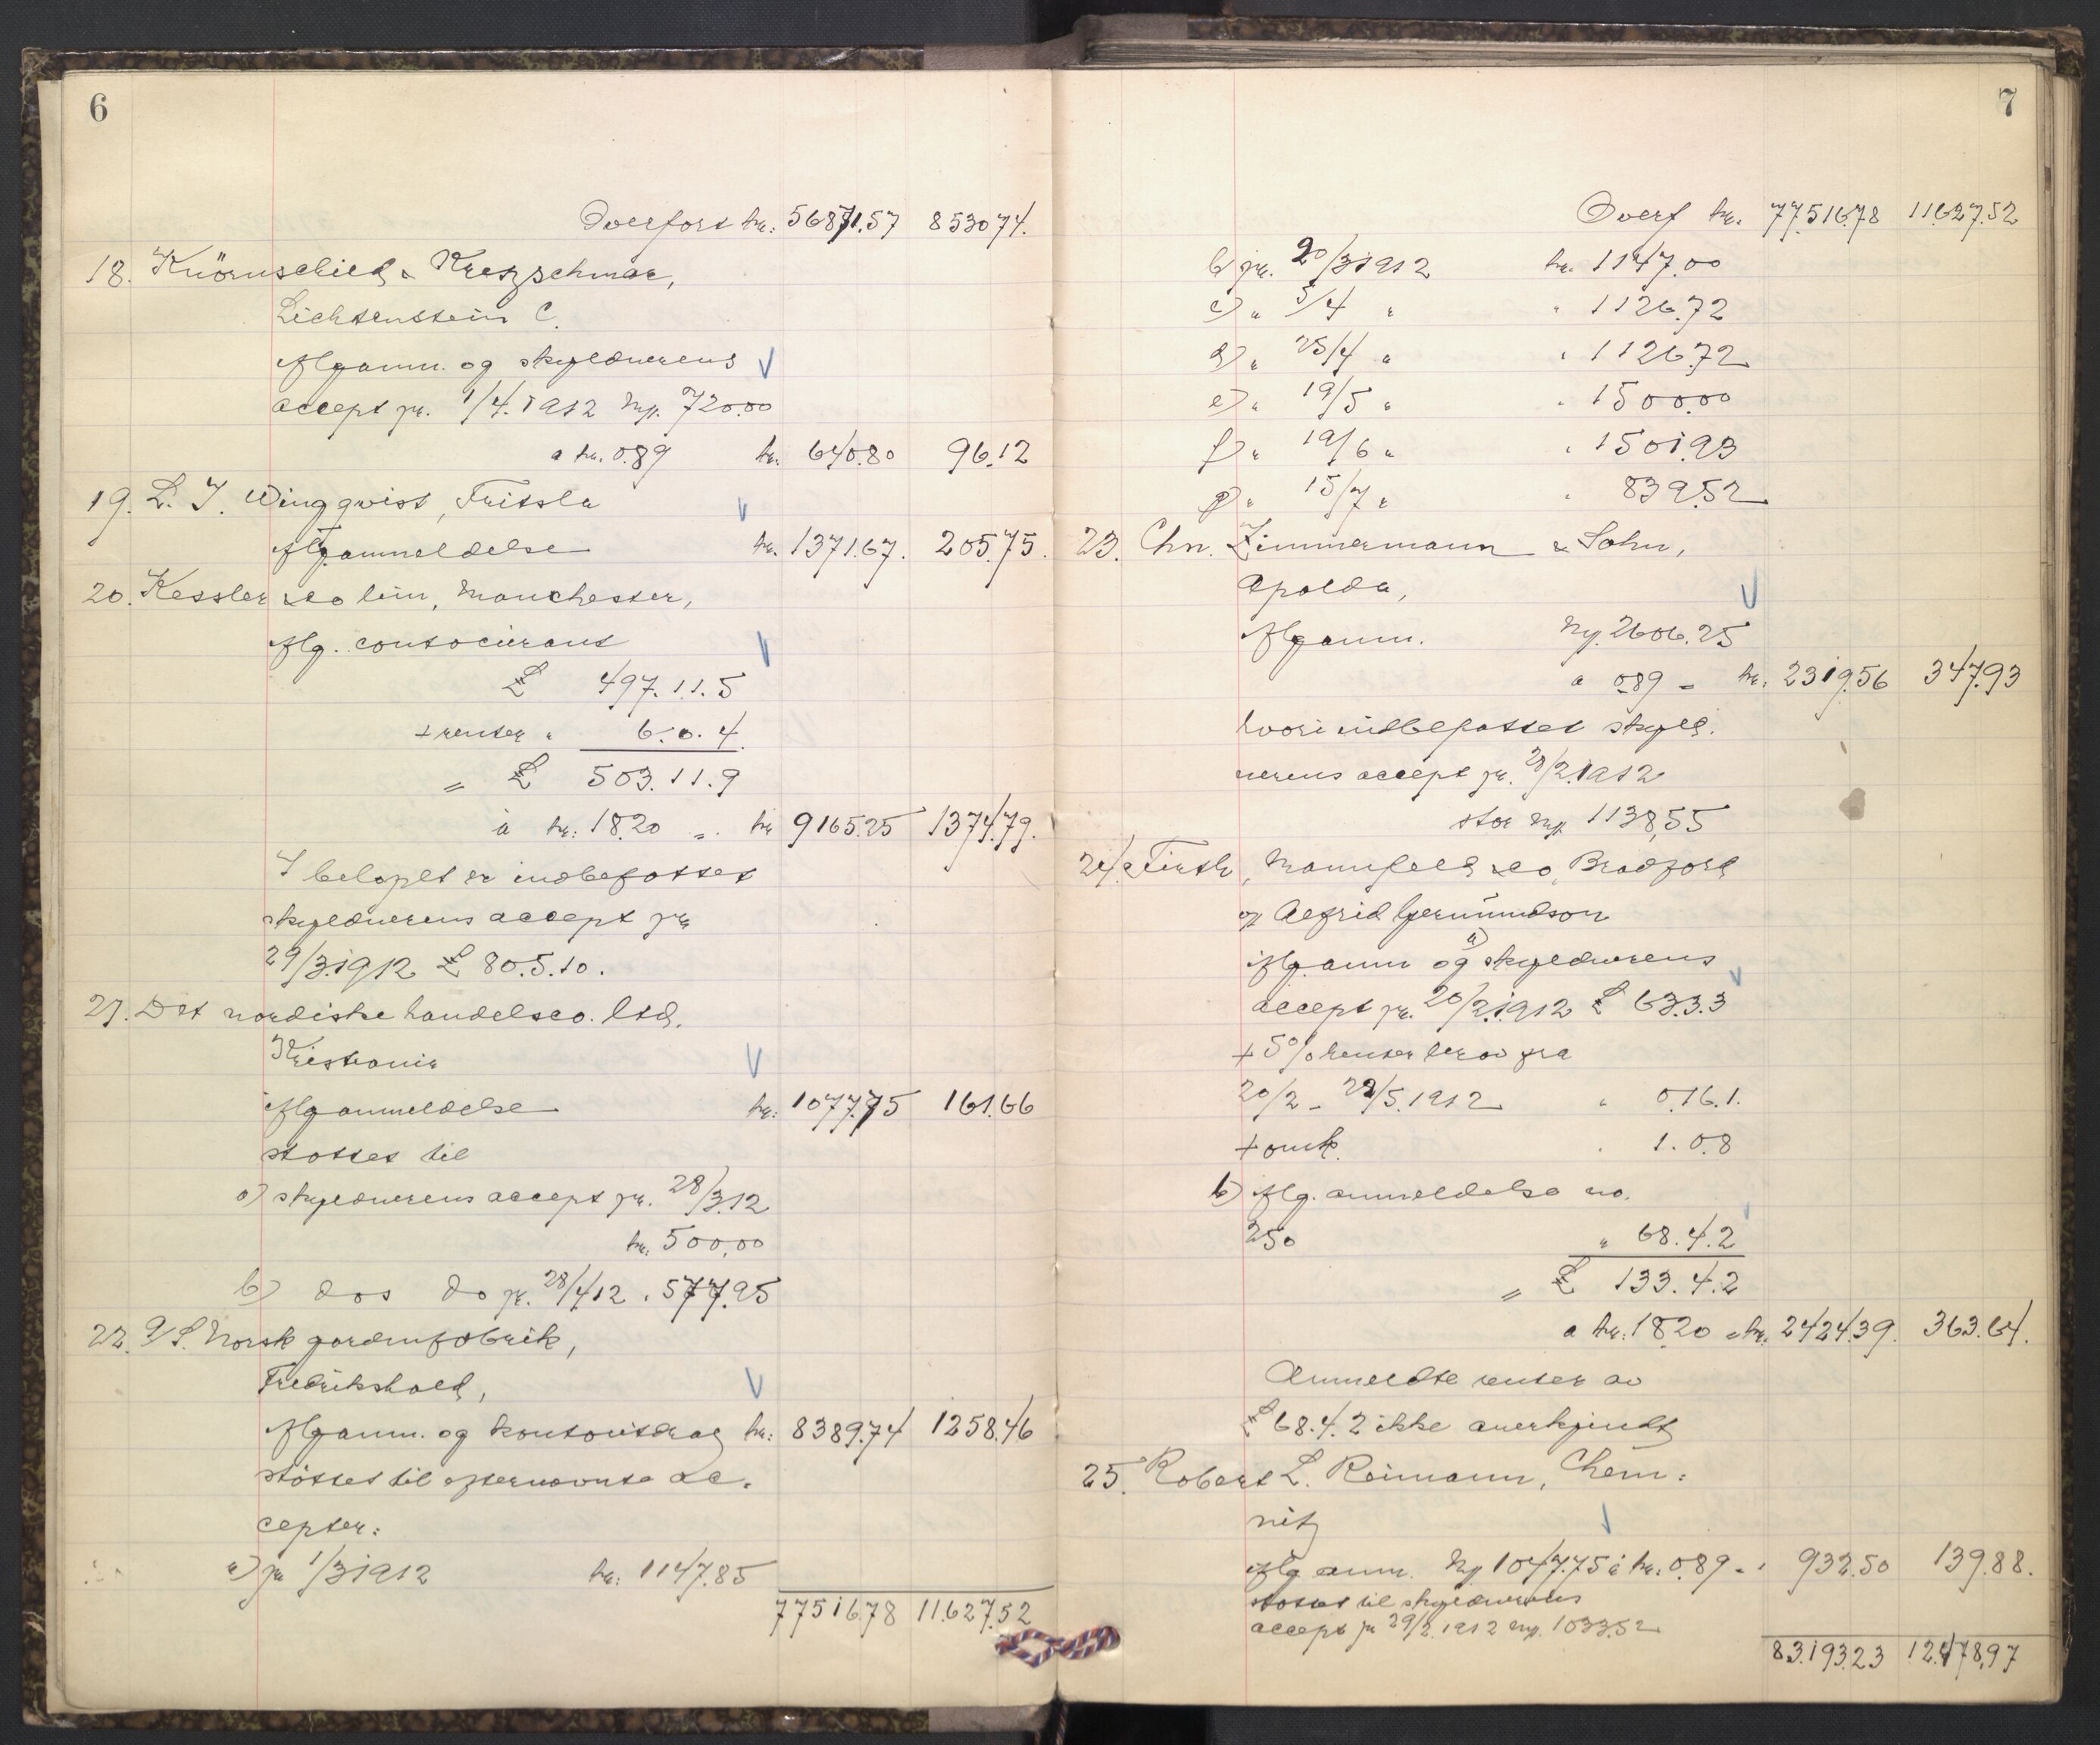 6
Overført kr. 56871.57 8530.74.
18. Knörnschild & Kretzschmar,
Lichtenstein C.
iflg anm. og skyldnerens
accept pr. 1/4. 1912 Mk. 720.00
a kr. 0.89 kr. 640.80 96.12
19. L. J. Wingqvist, Fritsla
iflg anmeldelse kr. 1371.67. 205.75.
20. Kessler & Co lim, Manchester,
iflg. contocurant
£ 497.11.5
+ renter " 6.0.4.
= £ 503.11.9
à kr. 18.20 = kr 9165.25 1374.79.
I beløpet er indbefattet
skyldnerens accept pr
29/3.1912 £ 80.5.10.
21. Det nordiske handelsco. ltd.
Kristiania
iflg anmeldelse kr. 1077.95 161.66
støttet til
a) skyldnerens accept pr. 28/3.12
kr. 500,00
b) dos do pr. 28/4 12 " 577.95
22. A/S. Norsk gardinfabrik,
Fredrikshald,
iflg anm. og kontoutdrag kr: 8389.74 1258.46
støttet til efternævnte ac-
cepter:
a) pr 1/3 1912 kr: 1147.85
77516.78 11.627.52
7
Overf kr. 77.516.78 11.627.52
b) pr. 20/3 1912 kr. 1147.00
c) " 5/4 " " 1126.72
d) " 25/4 " " 1126.72
e) " 19/5 " " 1500.00
f) " 19/6 " " 1501.93
g) " 15/7 " " 839.52
23. Chr. Zimmermann & Sohn,
Apolda,
iflg anm. Mk. 2606.25
a 0.89 = kr. 2319.56 347.93
hvori indbefattet skyld-
nerens accept pr. 28/2.1912
stor Mk 1138,55
24. Firth, Mannfeld & Co, Bradford
v/ Alfrid Germundson
iflg. anm og a) skyldnerens
accept pr. 20/2.1912 £ 63.3.3
+ 5% renter herav fra
20/2 - 22/5.1912 " 0.16.1.
+ omk. " 1.0.8
b) iflg. anmeldelse no.
250 " 68.4.2
= £ 133.4.2
a kr. 18.20 = kr. 2424.39. 363.64.
Anmeldte renter av
£ 68.4.2 ikke anerkjendt
25. Robert L. Reimann, Chem-
nitz
iflg anm. Mk 1047.75 à kr. 0.89 = " 932.50 139.88.
støttet til skyldnerens
accept pr 29/2.1912 Mk. 1033.52
83.193.23 12.478,97